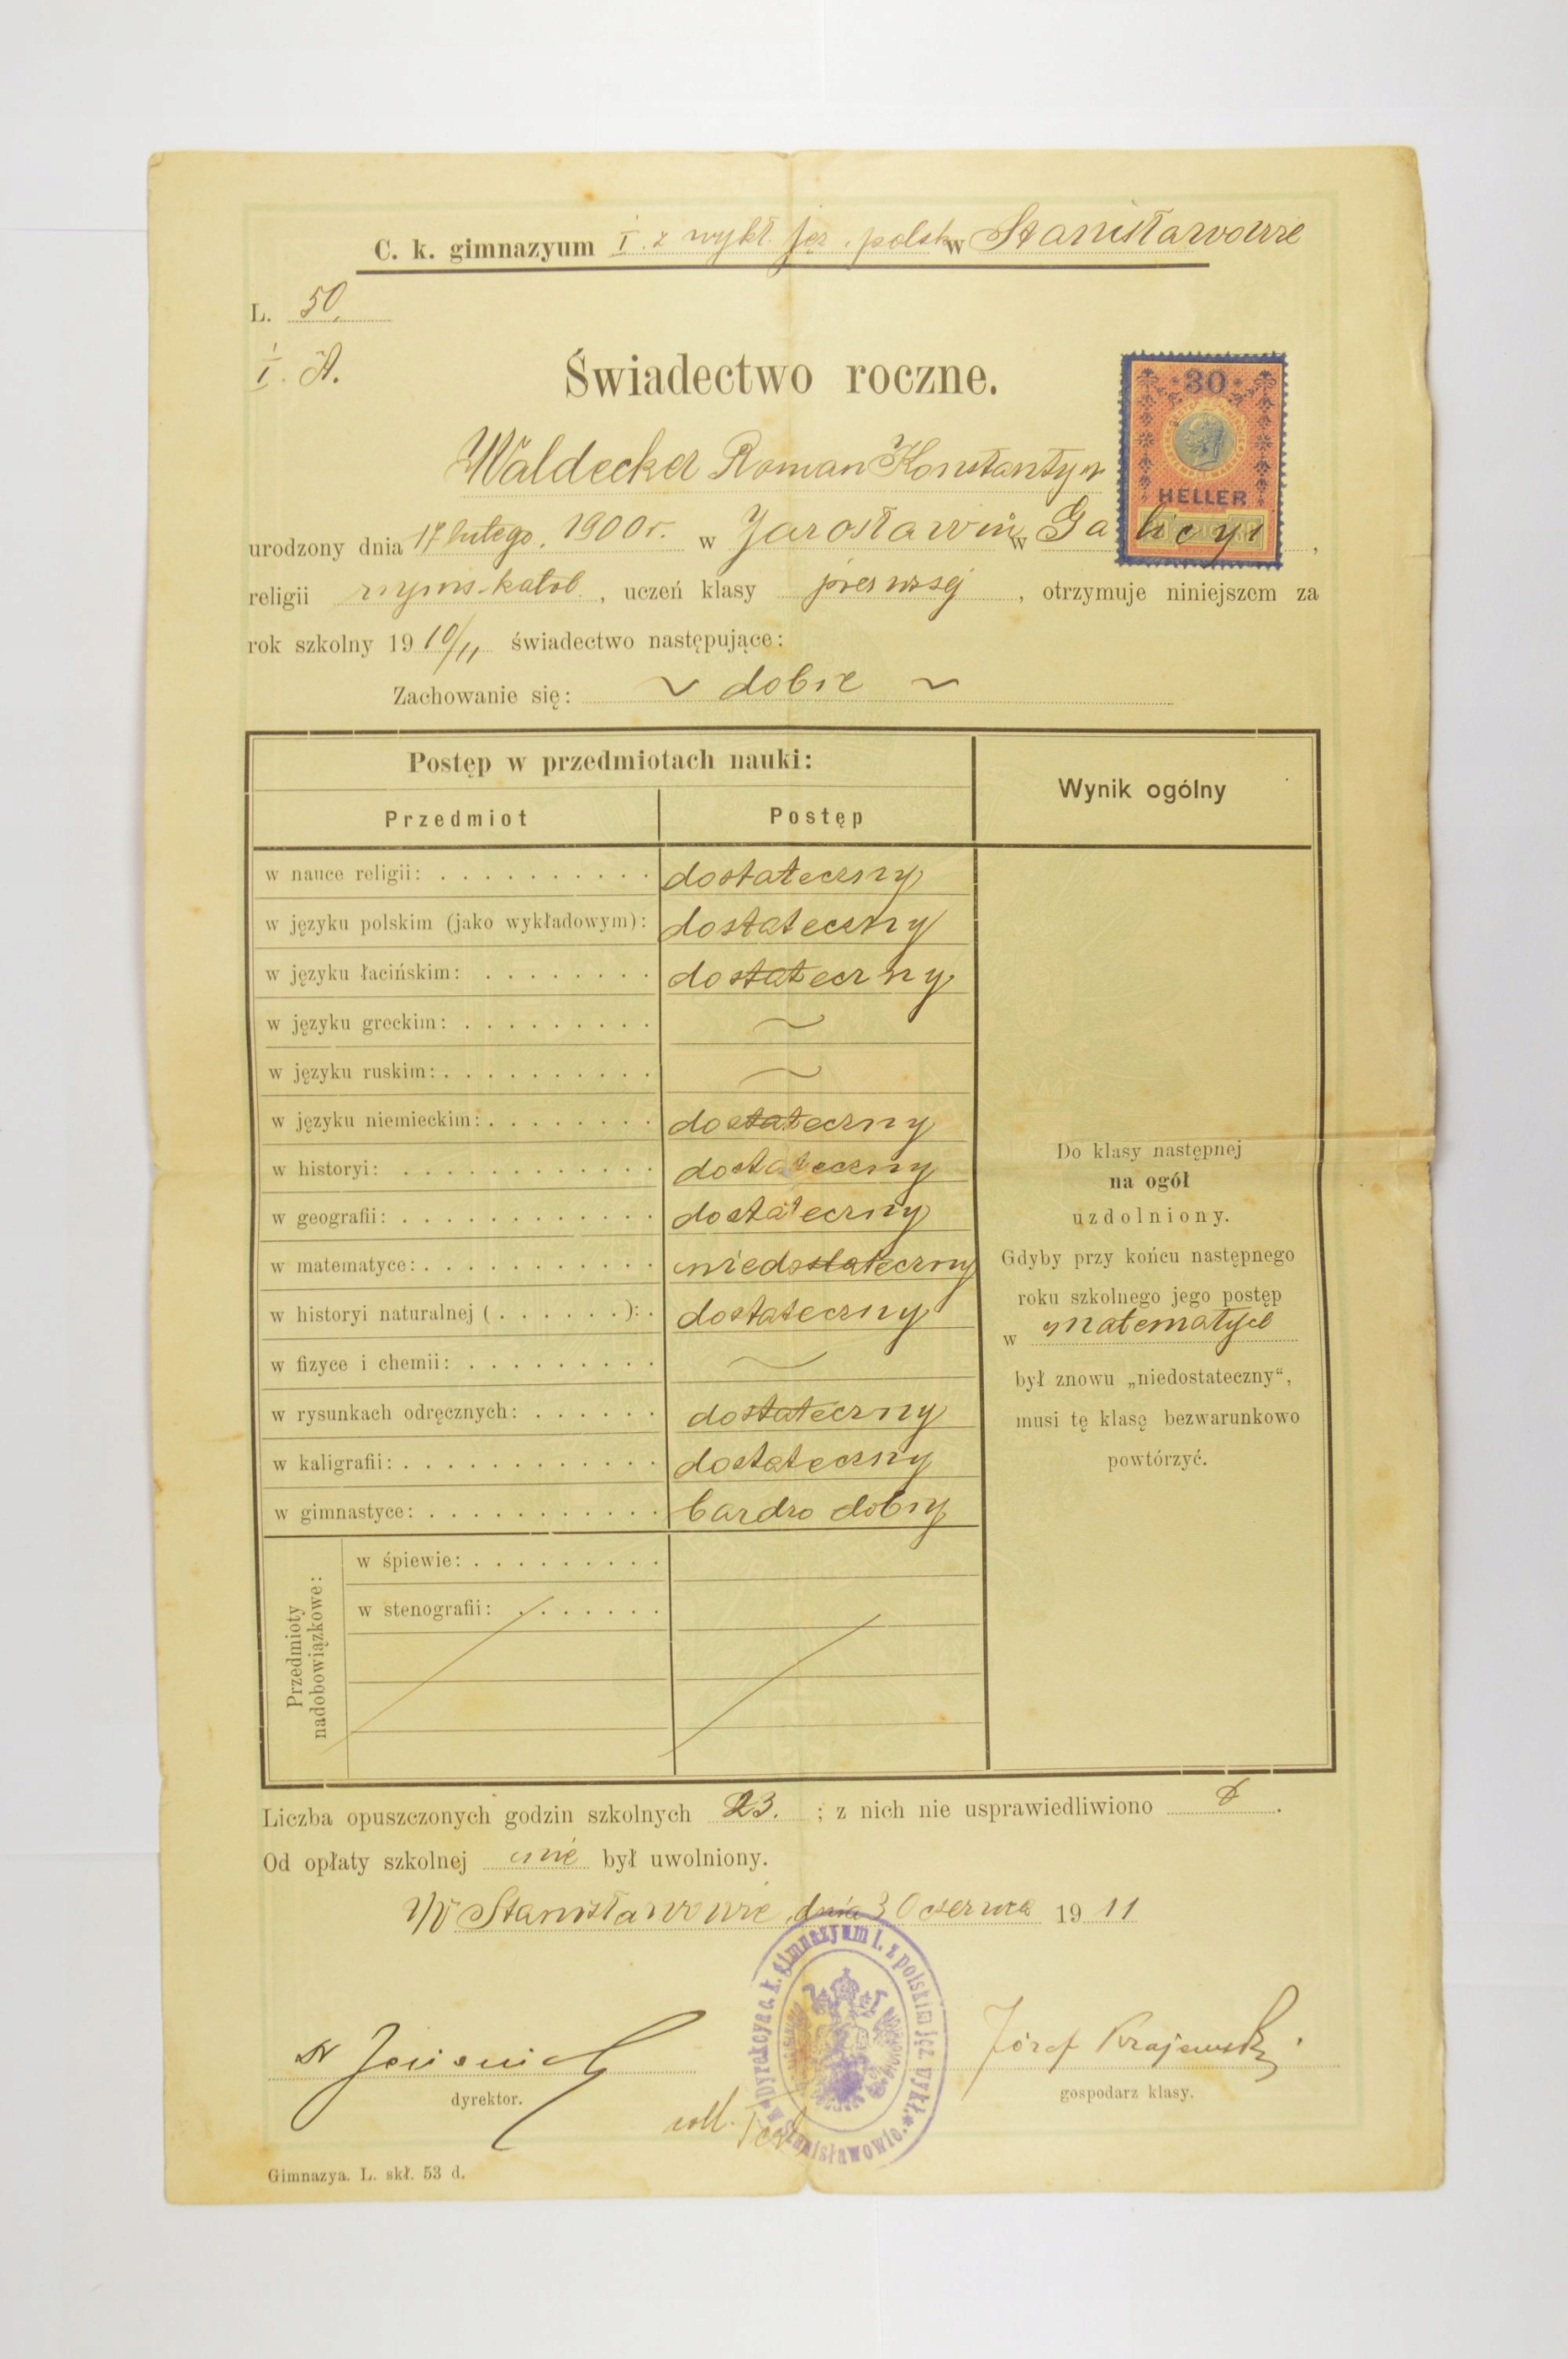 C. k. gimnazyum I. z wykł. jęz. polsk w Stanisławowie
L. 50.
I. A.
Świadectwo roczne.
30
HELLER
Waldecker Roman Konstantyn
urodzony dnia 17 lutego 1900 r. w Jarosławiu w Galicyi,
religii rzyms-katol., uczeń klasy pierwszej, otrzymuje niniejszem za
rok szkolny 1910/11 świadectwo następujące:
Zachowanie się: ~ dobre ~
Postęp w przedmiotach nauki: Wynik ogólny
Przedmiot Postęp
w nauce religii: dostateczny
w języku polskim (jako wykładowym): dostateczny
w języku łacińskim: dostateczny
w języku greckim: ~
w języku ruskim: ~
w języku niemieckim: dostateczny
w historyi: dostateczny
w geografii: dostateczny
w matematyce: niedostateczny
w historyi naturalnej ( . . . . . . ): dostateczny
w fizyce i chemii: ~
w rysunkach odręcznych: dostateczny
w kaligrafii: dostateczny
w gimnastyce: bardzo dobry
Przedmioty
nadobowiązkowe:
w śpiewie:
w stenografii:
Do klasy następnej
na ogół
uzdolniony.
Gdyby przy końcu następnego
roku szkolnego jego postęp
w matematyce
był znowu „niedostateczny“,
musi tę klasę bezwarunkowo
powtórzyć.
Liczba opuszczonych godzin szkolnych 23. ; z nich nie usprawiedliwiono .
Od opłaty szkolnej nie był uwolniony.
W Stanisławowie, dnia 30 czerwca 1911
Dyrekcya c. k. gimnazyum I. z polskim jęz. wykł.
w Stanisławowie.
Józef Krajewski
dyrektor. gospodarz klasy.
coll.
Gimnazya. L. skł. 53 d.